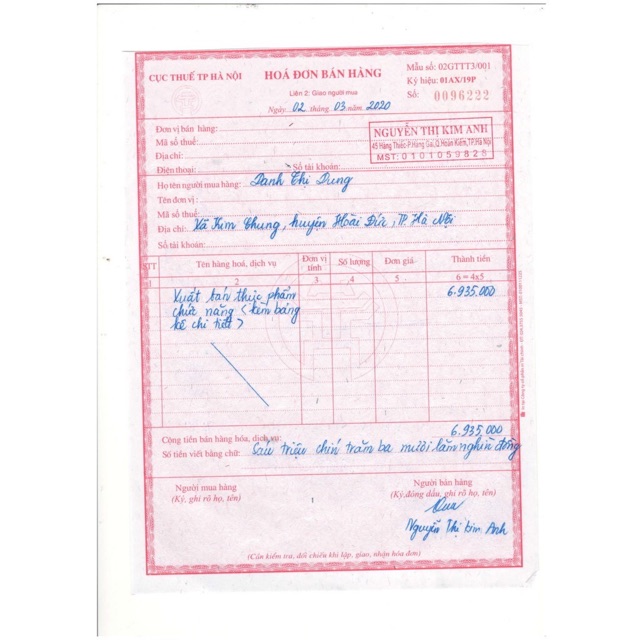 CỤC THUẾ TP HÀ NỘI
HOÁ ĐƠN BÁN HÀNG
Mẫu số: 02GTTT3/001
Ký hiệu: 01AX/19P
Liên 2: Giao người mua
Số: 0096222
Ngày 02 tháng 03 năm 2020
Đơn vị bán hàng:
Mã số thuế:
Địa chỉ:
Điện thoại: Số tài khoản:
NGUYỄN THỊ KIM ANH
45 Hàng Thiếc-P.Hàng Gai,Q.Hoàn Kiếm,TP.Hà Nội
MST: 0101059826
Họ tên người mua hàng: Danh Thị Dung
Tên đơn vị:
Mã số thuế:
Địa chỉ: Xã Kim Chung, huyện Hoài Đức, TP. Hà Nội
Số tài khoản:
STT Tên hàng hoá, dịch vụ Đơn vị tính Số lượng Đơn giá Thành tiền
1 2 3 4 5 6 = 4x5
Xuất bán thực phẩm 6.935.000
chức năng (kèm bảng
kê chi tiết)
Cộng tiền bán hàng hóa, dịch vụ: 6.935,000
Số tiền viết bằng chữ: Sáu triệu chín trăm ba mươi lăm nghìn đồng
Người mua hàng
(Ký, ghi rõ họ, tên)
Người bán hàng
(Ký,đóng dấu, ghi rõ họ, tên)
Nguyễn Thị Kim Anh
(Cần kiểm tra, đối chiếu khi lập, giao, nhận hóa đơn)